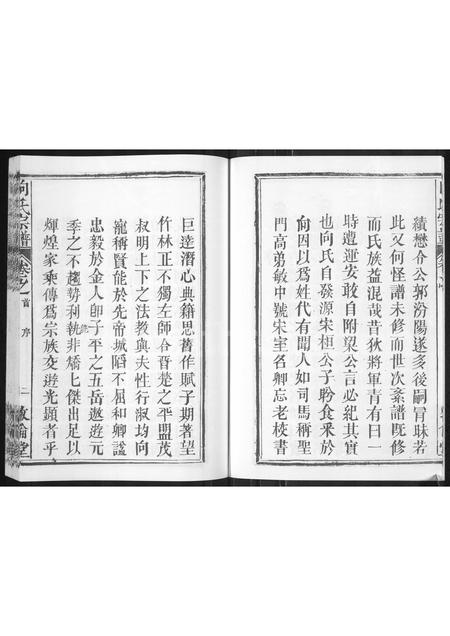 績懋令公郭汾陽遂多後嗣冐昧若
此又何怪譜未修而世次紊譜既修
而氏族益混哉昔狄將軍青有曰一
時遭運安敢自附梁公言必紀其實
也向氏自發源宋桓公子肹食采於
向因以爲姓代有聞人如司馬稱聖
門高弟敏中號宋室名卿忘老校書
巨達潛心典籍思舊作賦子期著望
竹林正不獨左師合晉楚之平盟茂
叔明上下之法教與夫性行淑均向
寵稱賢能於先帝城陷不屈和卿諡
忠毅於金人即子平之五岳遨遊元
季之不趨勢利執非矯七傑出足以
輝煌家乘傳爲宗族交遊光顯者乎
向氏宗譜
卷之
首序
二
敦倫堂